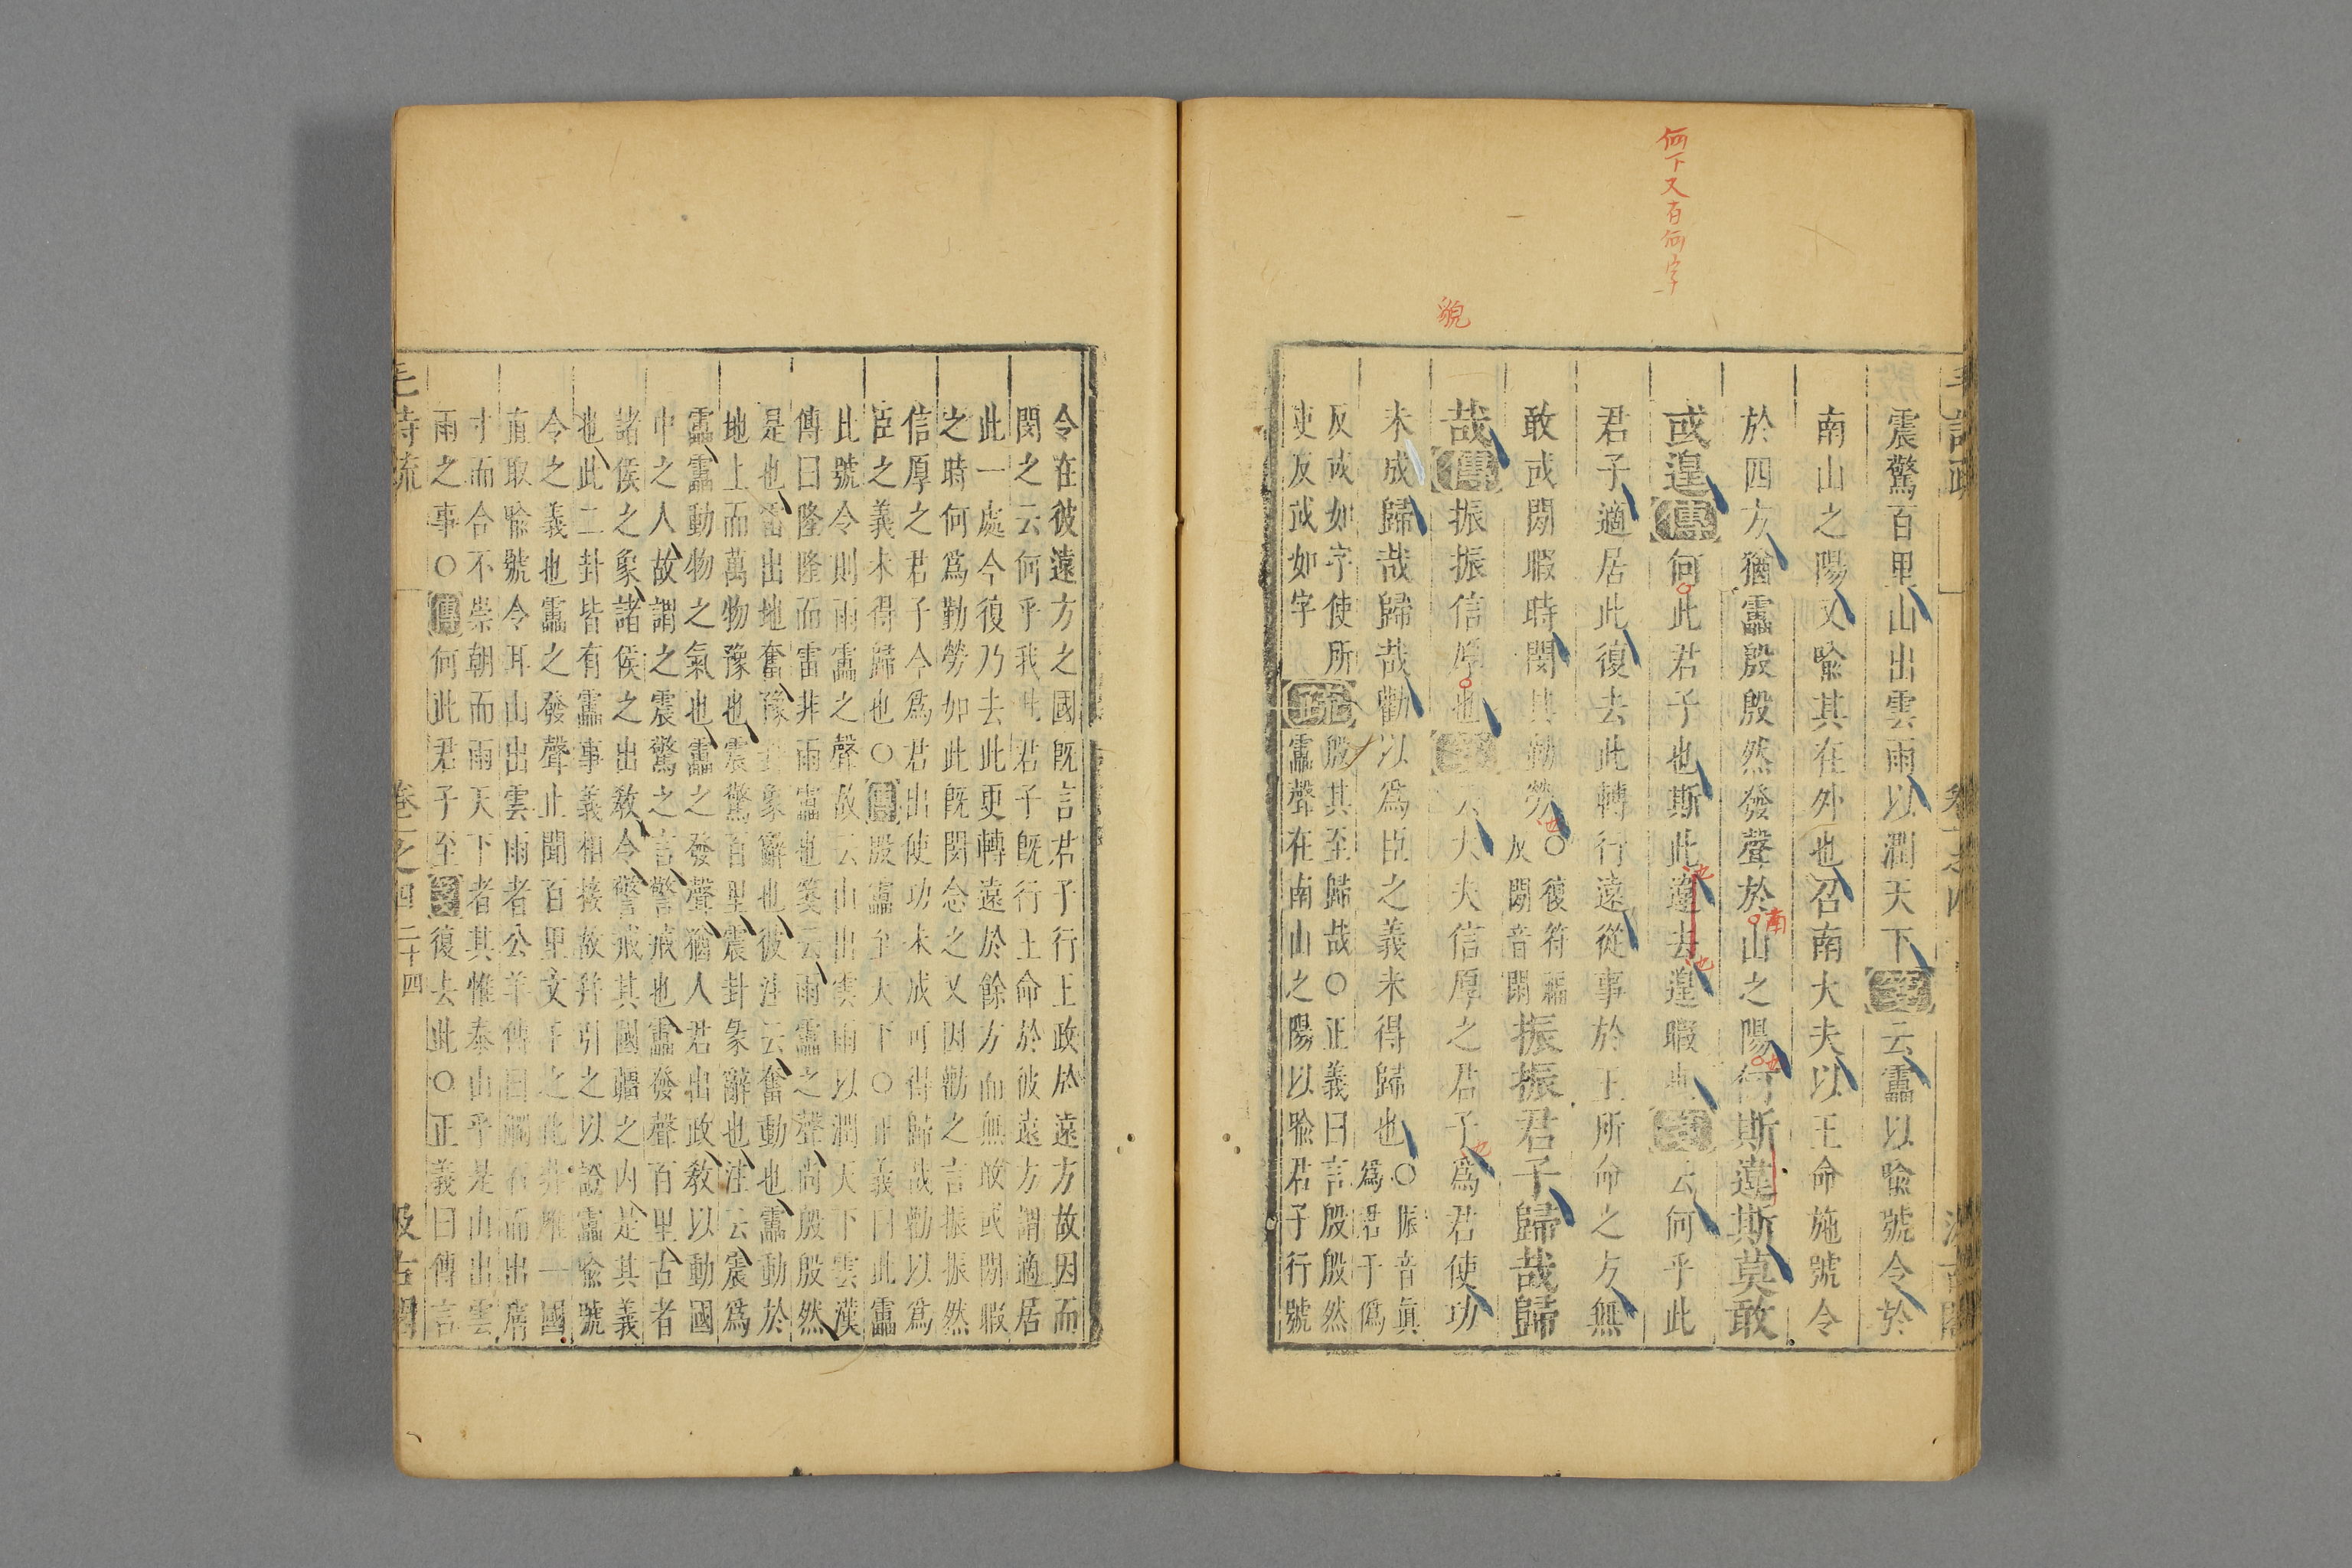 何下又有何字
貌
震驚百里山出雲雨以潤天下箋云靁以喩號令於
南山之陽又喩其在外也召南大夫以王命施號令
於四方猶靁殷殷然發聲於山之陽何斯違斯莫敢
南
或遑傳何此君子也斯此違去遑暇也箋云何乎此
君子適居此復去此轉行遠從事於王所命之方無
敢或閒暇時閔其勤勞○復符福反閒音閑振振君子歸哉歸
哉傳振振信厚也箋云大夫信厚之君子爲君使功
未成歸哉歸哉勸以爲臣之義未得歸也○振音眞爲君于僞
反或如字使所
吏反或如字
疏
正義
殷其至歸哉○正義曰言殷殷然
靁聲在南山之陽以喩君子行號
令在彼遠方之國旣言君子行王政於遠方故因而
閔之云何乎我此君子旣行王命於彼遠方謂適居
此一處今復乃去此更轉遠於餘方而無敢或閒暇
之時何爲勤勞如此旣閔念之又因勸之言振振然
信厚之君子今爲君出使功未成可得歸哉勸以爲
臣之義未得歸也○傳殷靁至天下○正義曰此靁
比號令則雨靁之聲故云山出雲雨以潤天下雲漢
傳曰隆隆而雷非雨靁也箋云雨靁之聲尚殷殷然
是也雷出地奮豫豫象辭也彼注云奮動也靁動於
地上而萬物豫也震驚百里震卦彖辭也注云震爲
靁靁動物之氣也靁之發聲猶人君出政教以動國
中之人故謂之震驚之言警戒也靁發聲百里古者
諸侯之象諸侯之出敎令警戒其國疆之內是其義
也此二卦皆有靁事義相接故幷引之以證靁喩號
令之義也靁之發聲止聞百里文王之化非唯一國
直取喩號令耳山出雲雨者公羊傳曰觸石而出膚
寸而合不崇朝而雨天下者其惟泰山乎是山出雲
雨之事○傳何此君子至箋復去此○正義曰傳言
毛詩疏　卷一之四　二十四　汲古閣